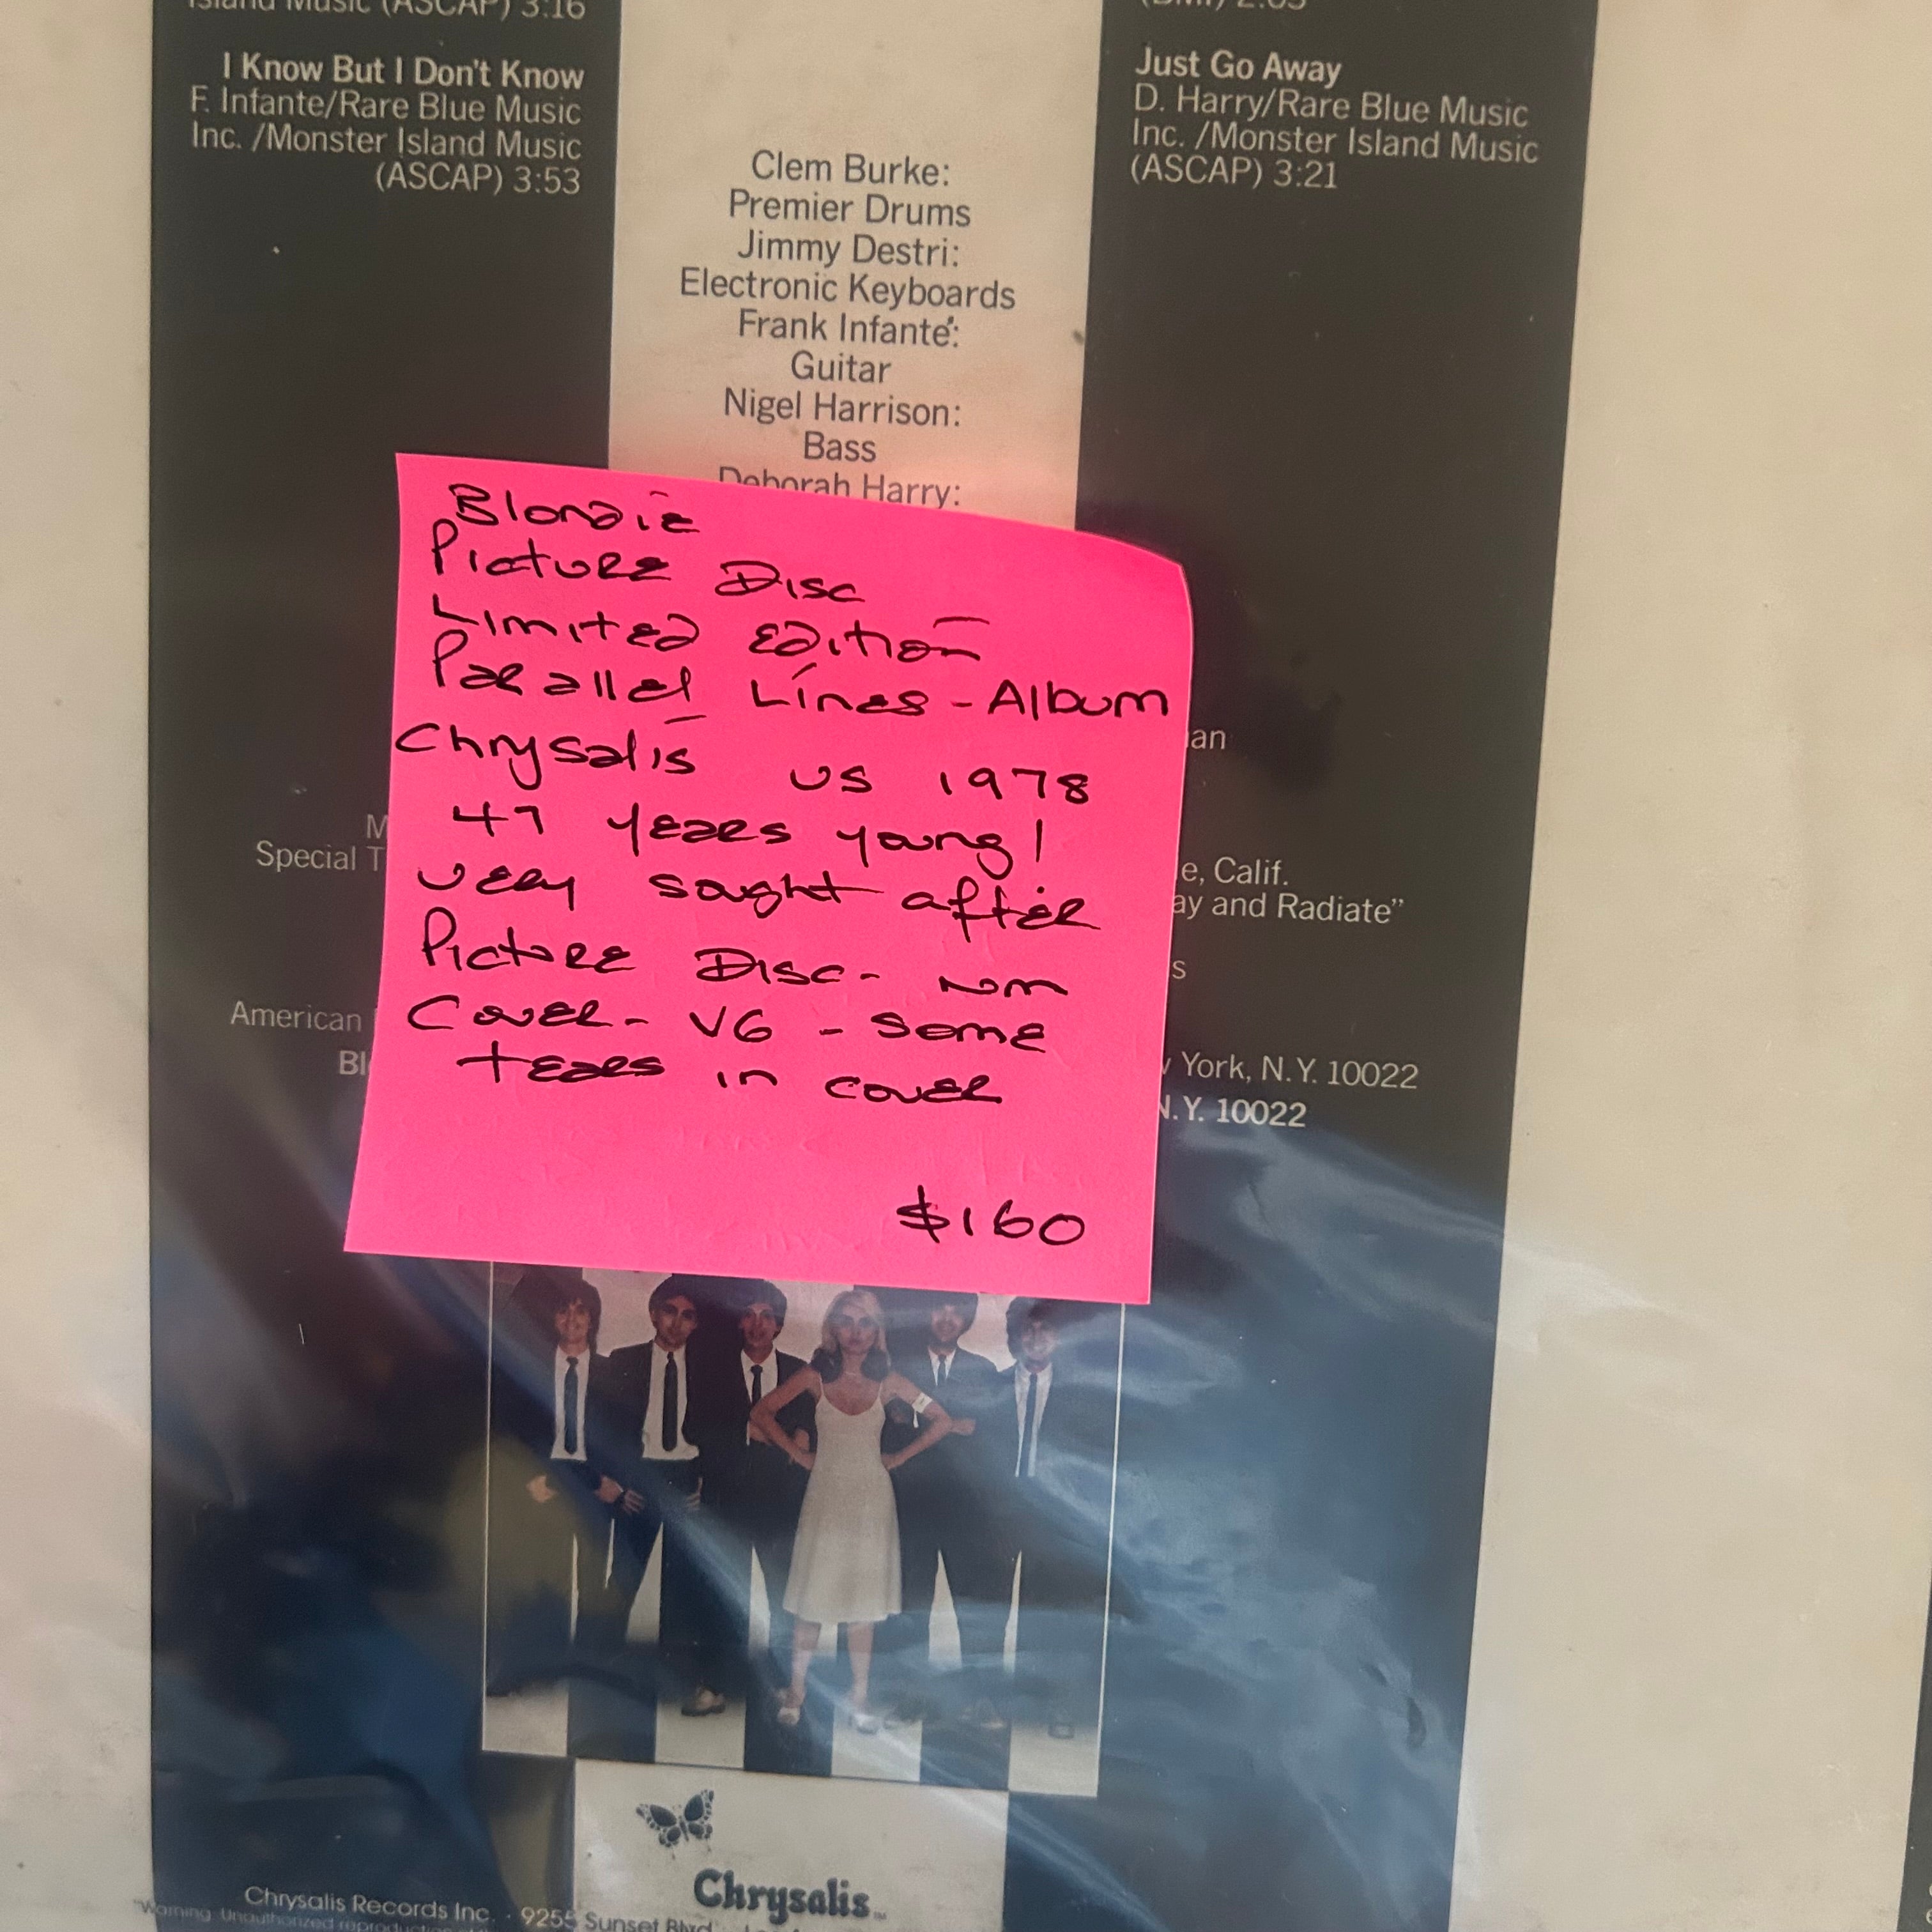 Island Music (ASCAP) 3:16
I Know But I Don't Know
F. Infante/Rare Blue Music
Inc. /Monster Island Music
(ASCAP) 3:53
Just Go Away
D. Harry/Rare Blue Music
Inc. /Monster Island Music
(ASCAP) 3:21
Clem Burke:
Premier Drums
Jimmy Destri:
Electronic Keyboards
Frank Infante:
Guitar
Nigel Harrison:
Bass
Deborah Harry:
Blondie
Picture Disc
Limited Edition
Parallel Lines - Album
Chrysalis US 1978
47 years young!
very sought after
Picture Disc - NM
Cover - VG - some
tears in cover
$160
Special
e, Calif.
ay and Radiate"
American
York, N.Y. 10022
N.Y. 10022
Chrysalis
Chrysalis Records Inc. · 9255 Sunset Blvd
"Warning: Unauthorized reproduction